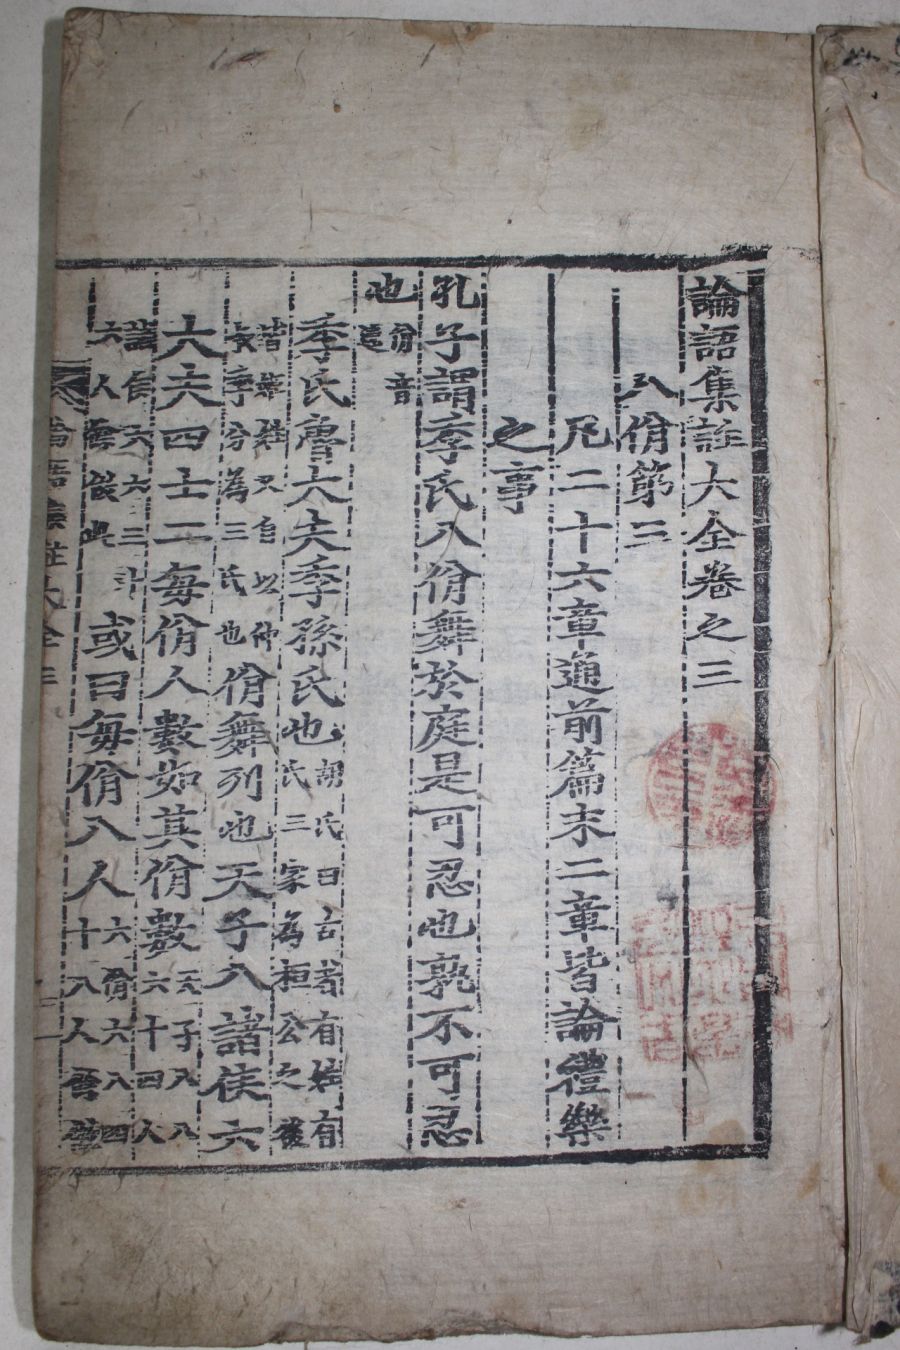 論語集註大全卷之三
八佾第三
凡二十六章通前篇末二章皆論禮樂
之事
孔子謂季氏八佾舞於庭是可忍也孰不可忍
也佾音逸
季氏魯大夫季孫氏也胡氏曰古者有姓有氏三家為桓公之後
皆姬姓又自以仲叔季分為三氏也佾舞列也天子八諸侯六
大夫四士二每佾人數如其佾數天子八八六十四人
諸侯六六三十六人餘倣此或曰每佾八人六佾六八四十八人餘倣
論語集註大全三